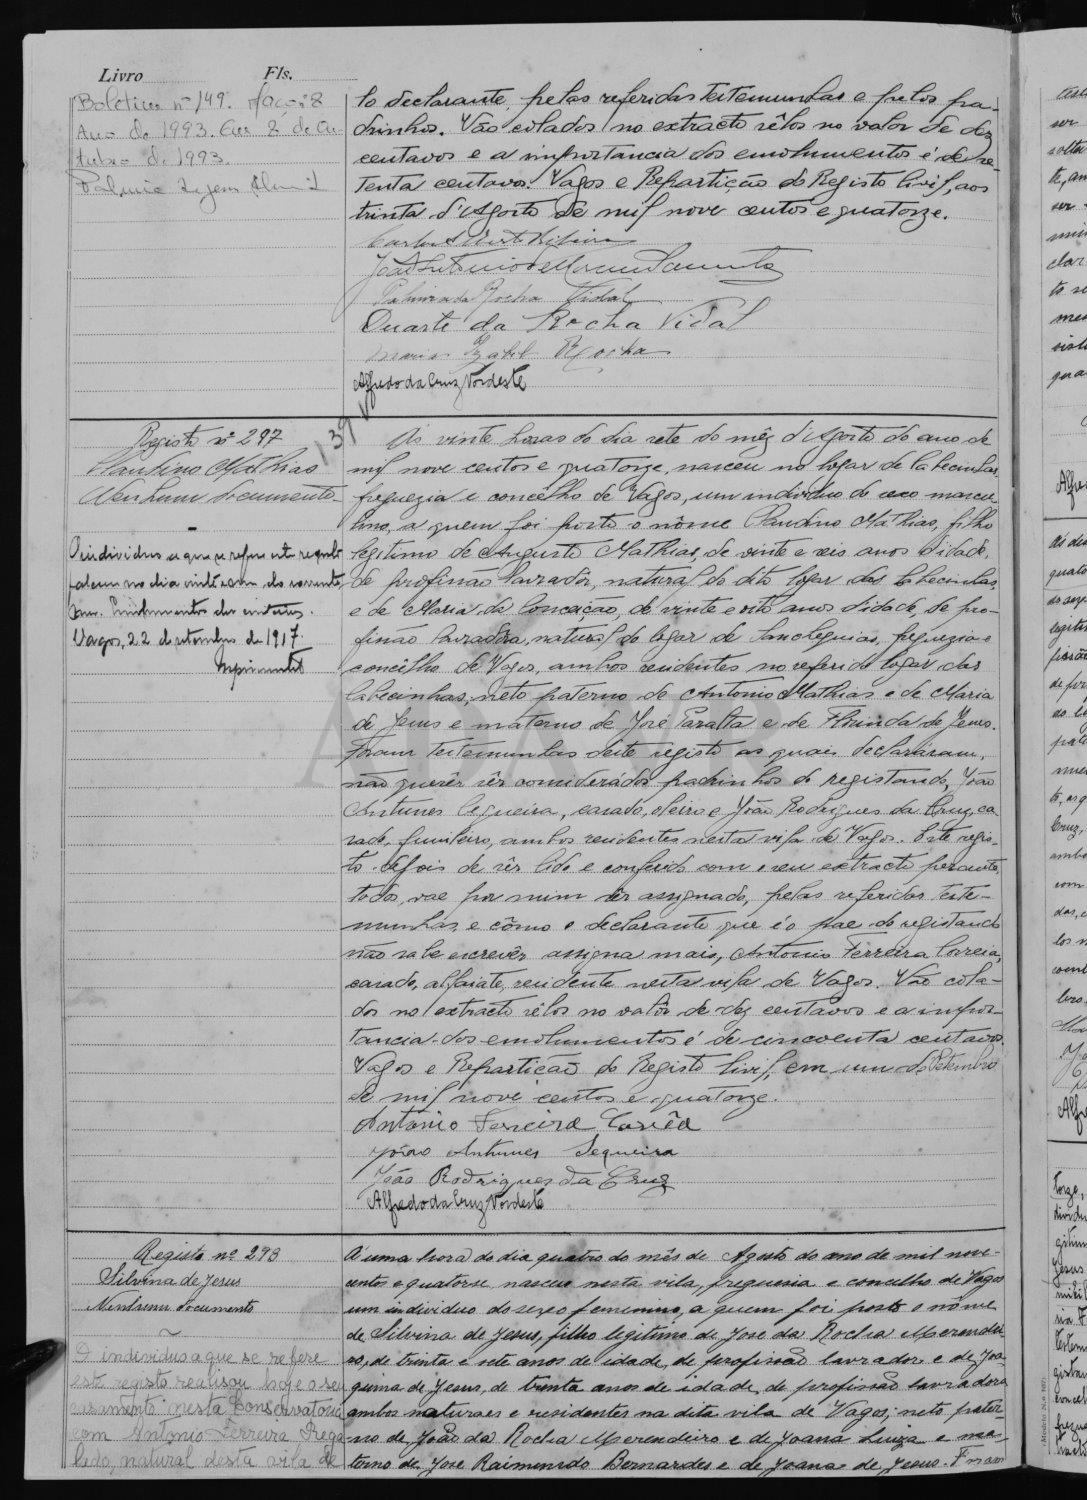 Livro Fls.
Boletim nº 149. Maço 8
Ano de 1993. Em 8 de Ou
tubro de 1993.
to declarante, pelas referidas testemunhas e pelos pa-
drinhos. Vão colados no extracto sêlos no valor de dez
centavos e a importancia dos emolumentos é de se-
tenta centavos. Vagos e Repartição do Registo Civil, aos
trinta d'Agosto de mil nove centos e quatorze.
Palmira da Rocha Vidal
Duarte da Rocha Vidal
Maria Izabel Rocha
Alfredo da Cruz Nordeste
Registo nº 297
Claudino Mathias
Nenhum documento
O individuo a que se refere este registo
faleceu no dia vinte do corrente
ano. Emolumentos dez centavos.
Vagos, 22 de setembro de 1917.
139
Ás vinte horas do dia sete do mêz d'Agosto do ano de
mil nove centos e quatorze, nasceu no logar de Cabecinhas,
freguezia e concêlho de Vagos, um individuo do sexo mascu-
lino, a quem foi posto o nôme Claudino Mathias, filho
legitimo de Augusto Mathias, de vinte e seis anos d'idade,
de profissão lavradôr, natural do dito logar das Cabecinhas,
e de Maria da Conceição, de vinte e oito anos d'idade, de pro-
fissão lavradôra, natural do logar de Sanchequias, freguezia e
concêlho de Vagos, ambos residentes no referido logar das
Cabecinhas, neto paterno de Antonio Mathias e de Maria
de Jesus e materno de José Paralta e de Florinda de Jesus.
Foram testemunhas deste registo as quaes declararam,
não querêr sêr considerádos padrinhos do registando, João
Antunes Sequeira, casado, oleiro e João Rodrigues da Cruz, ca-
sado, funileiro, ambos residentes nesta vila de Vagos. Este regis-
to depois de sêr lido e conferido com o seu extracto perante
todos, vae por mim sêr assignado, pelas referidas teste-
munhas e cômo o declarante que é o pae do registando
não sabe escrevêr assigna mais, Antonio Ferreira Correia,
casado, alfaiate, residente nesta vila de Vagos. Vão cola-
dos no extracto sêlos no valôr de dez centavos e a impor-
tancia dos emolumentos é de cincoenta centavos.
Vagos e Repartição do Registo Civil, em um de Setembro
de mil nove centos e quatorze.
António Ferreira Corrêa
João Antunes Sequeira
João Rodrigues da Cruz
Alfredo da Cruz Nordeste
Registo nº 298
Silvina de Jesus
Nenhum documento
O individuo a que se refere
este registo realisou hoje o seu
casamento nesta Conservatória
com António Ferreira Rega
lado, natural desta vila de
Á uma hora do dia quatro do mês de Agosto do ano de mil nove-
centos e quatorse, nasceu nesta vila, freguesia e concelho de Vagos
um individuo do sexo feminino, a quem foi posto o nôme
de Silvina de Jesus, filho legitimo de José da Rocha Merendei-
ro, de trinta e sete anos de idade, de profissão lavrador e de Joa-
quina de Jesus, de trinta anos de idade, de profissão lavradora
ambos naturaes e residentes na dita vila de Vagos; neto pater-
no de João da Rocha Merendeiro e de Joana Luiza e ma-
terno de José Raimundo Bernardes e de Joana de Jesus. Foram